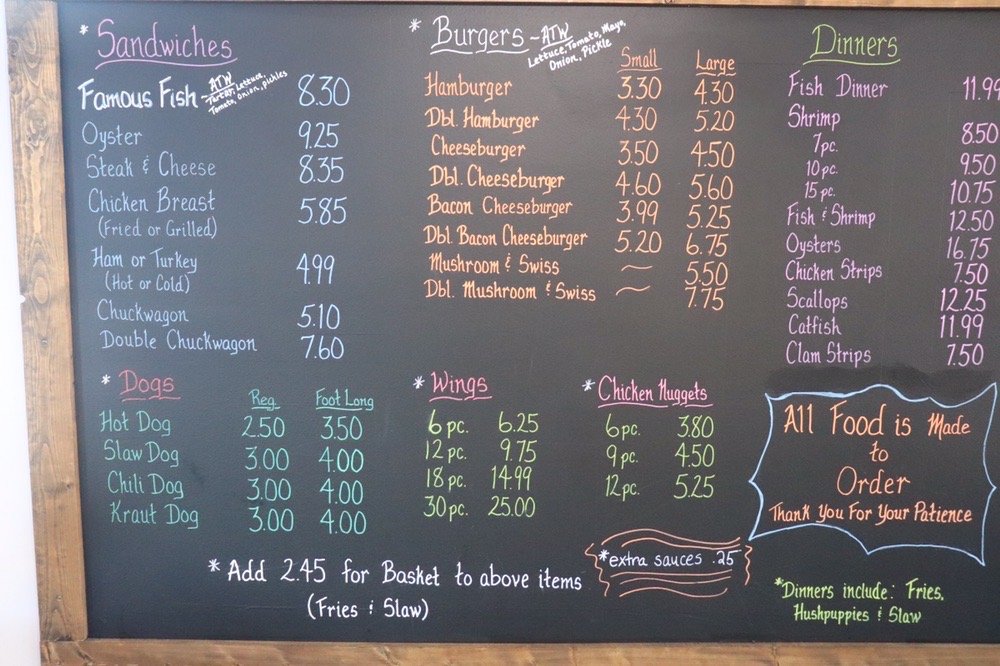 * Sandwiches
Famous Fish - ATW
Tartar, Lettuce,
Tomato, Onion, Pickles
8.30
Oyster 9.25
Steak & Cheese 8.35
Chicken Breast 5.85
(Fried or Grilled)
Ham or Turkey 4.99
(Hot or Cold)
Chuckwagon 5.10
Double Chuckwagon 7.60
* Burgers - ATW
Lettuce, Tomato, Mayo,
Onion, Pickle
Small Large
Hamburger 3.30 4.30
Dbl. Hamburger 4.30 5.20
Cheeseburger 3.50 4.50
Dbl. Cheeseburger 4.60 5.60
Bacon Cheeseburger 3.99 5.25
Dbl. Bacon Cheeseburger 5.20 6.75
Mushroom & Swiss ~ 5.50
Dbl. Mushroom & Swiss ~ 7.75
Dinners
Fish Dinner 11.99
Shrimp
7pc. 8.50
10pc. 9.50
15pc. 10.75
Fish & Shrimp 12.50
Oysters 16.75
Chicken Strips 7.50
Scallops 12.25
Catfish 11.99
Clam Strips 7.50
* Dogs
Reg. Foot Long
Hot Dog 2.50 3.50
Slaw Dog 3.00 4.00
Chili Dog 3.00 4.00
Kraut Dog 3.00 4.00
* Wings
6pc. 6.25
12pc. 9.75
18pc. 14.99
30pc. 25.00
* Chicken Nuggets
6pc. 3.80
9pc. 4.50
12pc. 5.25
All Food is Made
to
Order
Thank You For Your Patience
* Add 2.45 for Basket to above items
(Fries & Slaw)
* extra sauces .25
*Dinners include: Fries,
Hushpuppies & Slaw